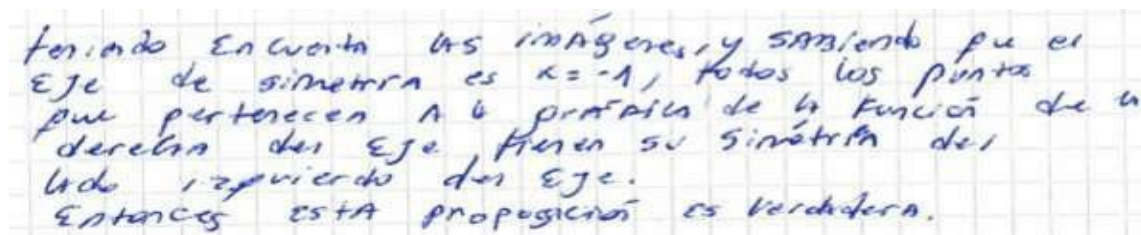 teniendo En cuenta las imágenes, y sabiendo que el
Eje de simetría es x = -1, todos los puntos
que pertenecen a la gráfica de la función de la
derecha del Eje, tienen su simétria del
lado izquierdo del Eje.
Entonces esta proposición es verdadera.